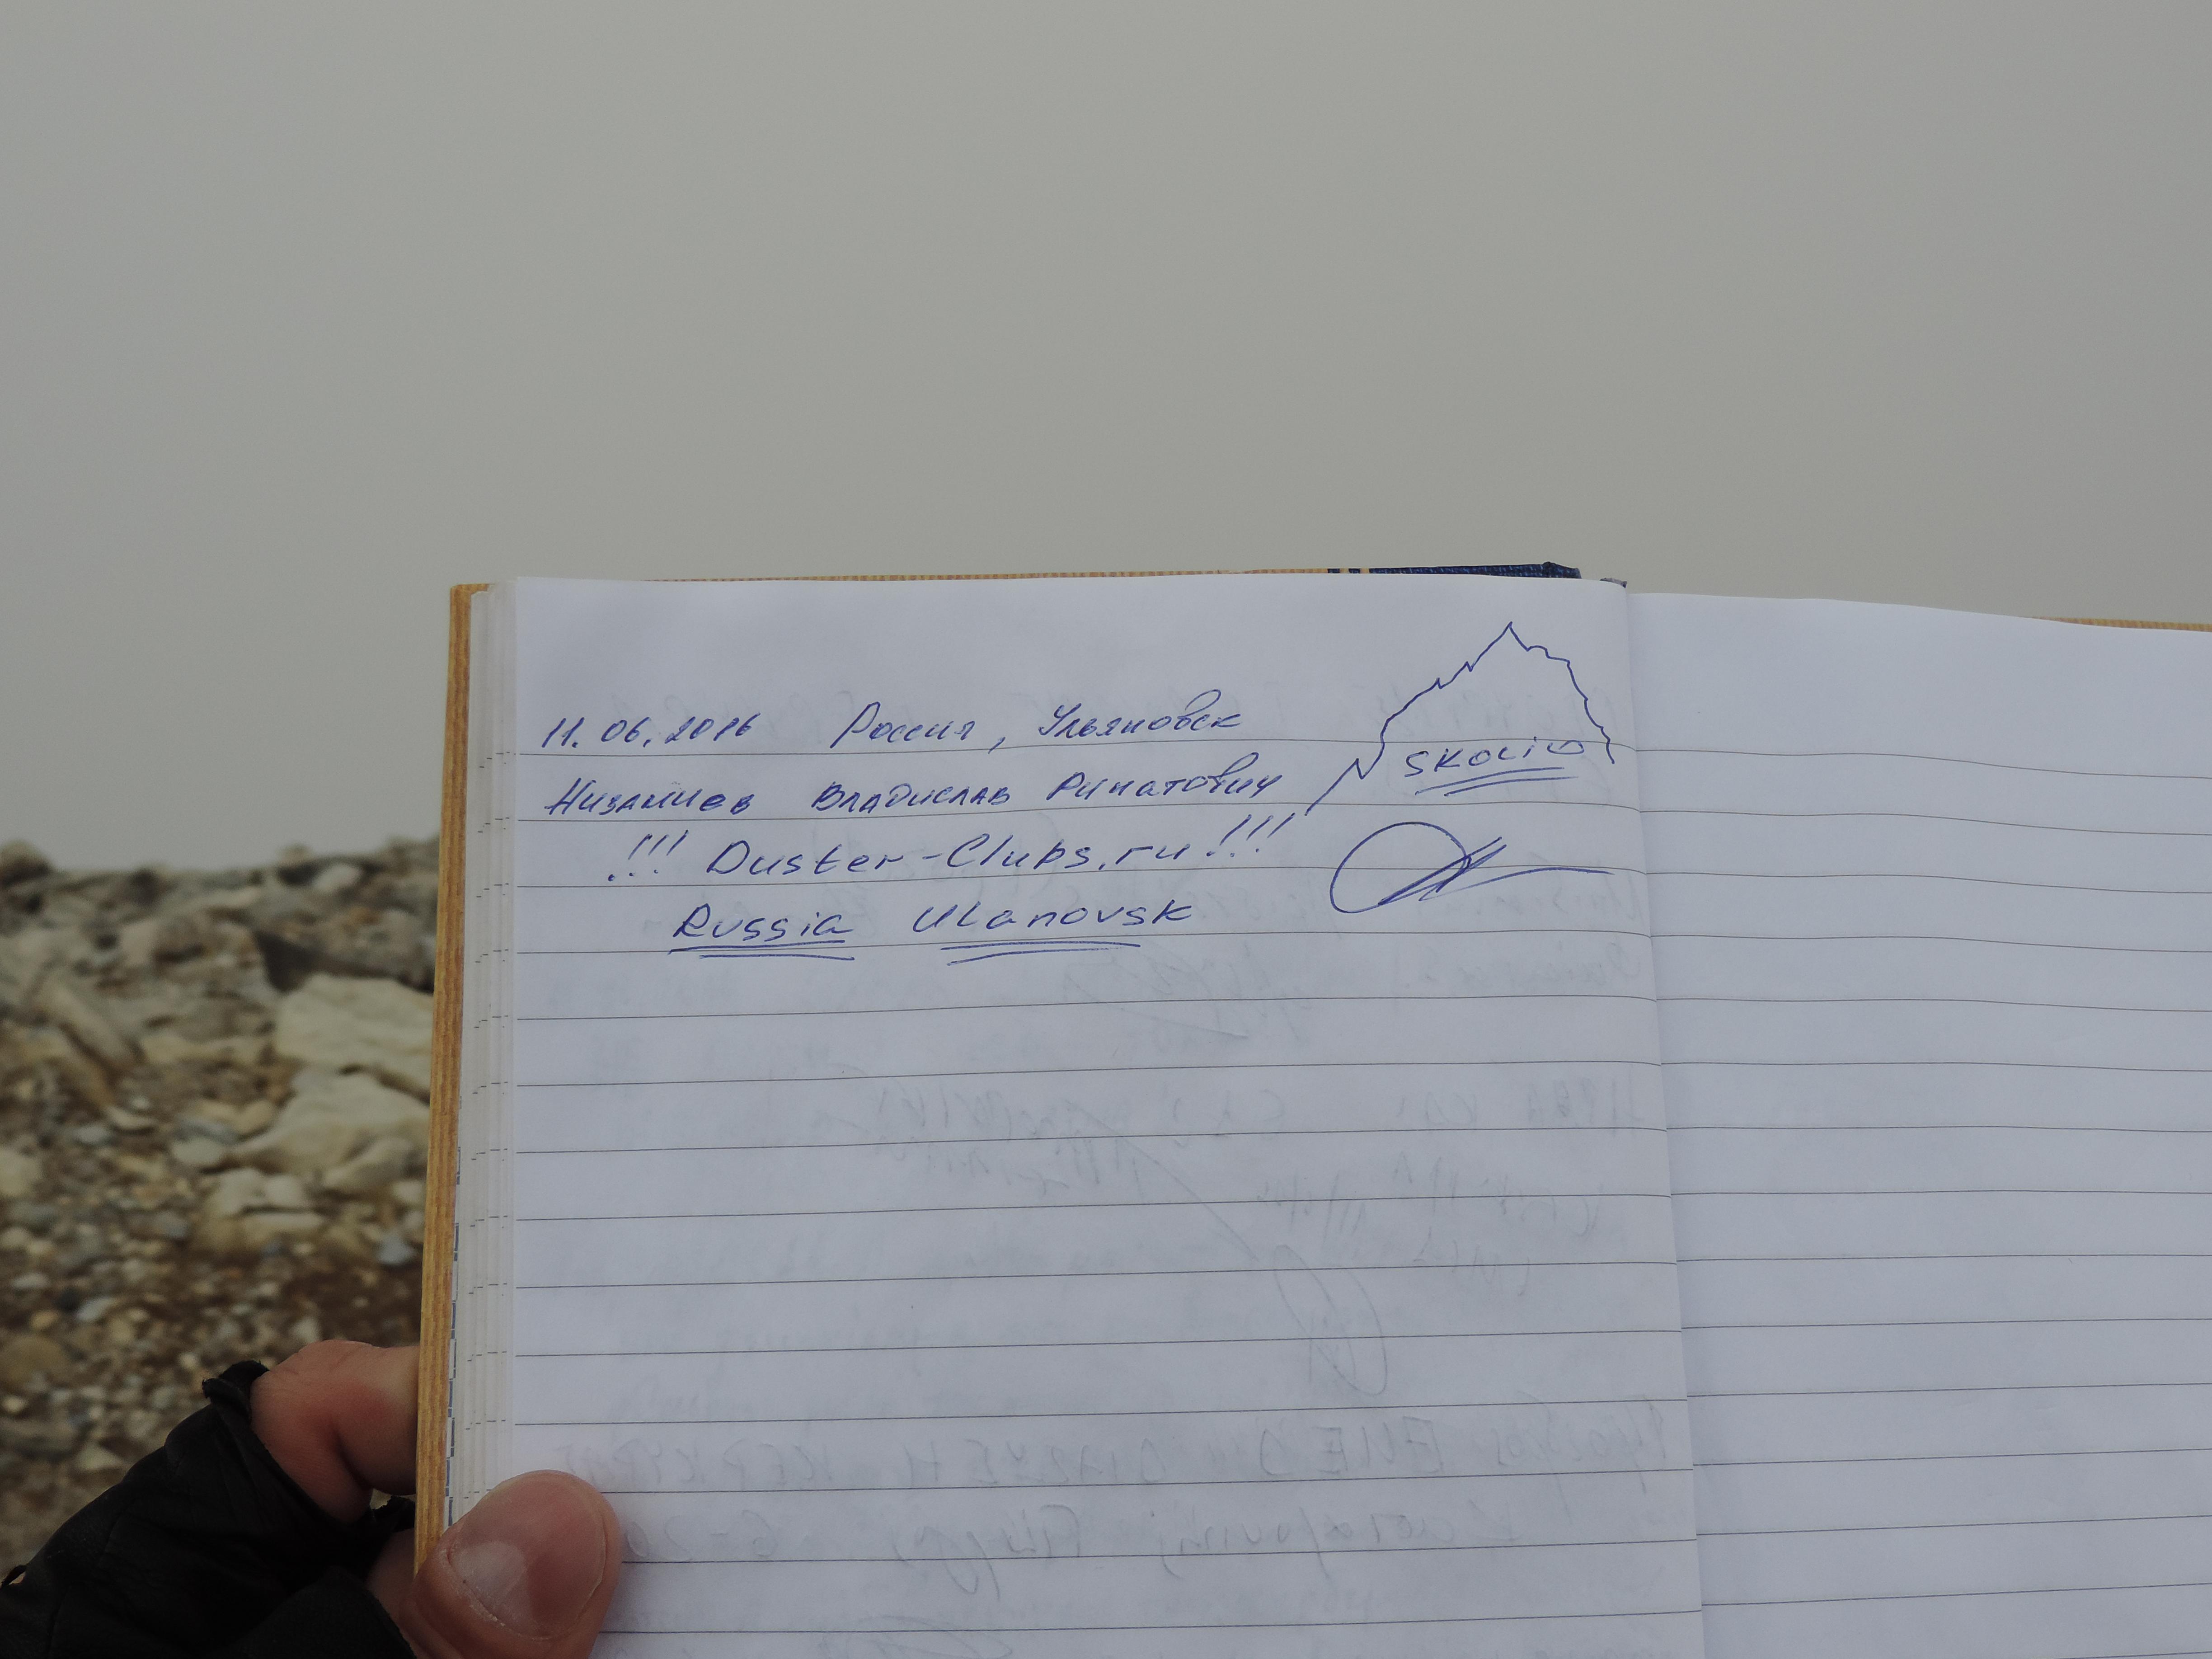 11.06.2016 Россия, Ульяновск
Низамиев Владислав Ринатович
!!! Duster-Clubs.ru !!!
Russia Ulanovsk
SKOLIO